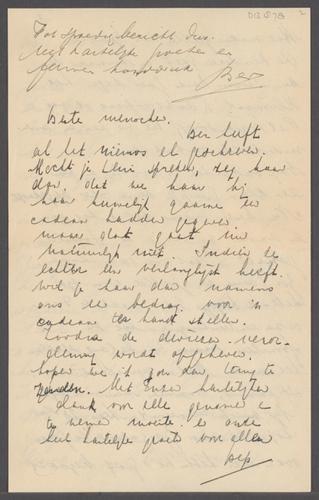 DB 878
2
Tot spoedig bericht dus.
met hartelijke groeten en
ferme handdruk
Ber
Beste menschen.
Ber heeft
al het nieuws al geschreven.
Mocht je Leni spreken, zeg haar
dan, dat we haar bij
haar huwelijk gaarne een
cadeau hadden gegeven
maar dat gaat nu
natuurlijk niet. Indien ze
echter een verlanglijst heeft.
wil je haar dan namens
ons een bedrag voor 'n
cadeau ter hand stellen.
Zoodra de deviezen veror-
dening wordt opgeheven
hopen we 't jou dan terug te
zenden. Met onze hartelijke
dank voor alle genomen en
te nemen moeite. en onze
zeer hartelijke groeten voor allen
Jep